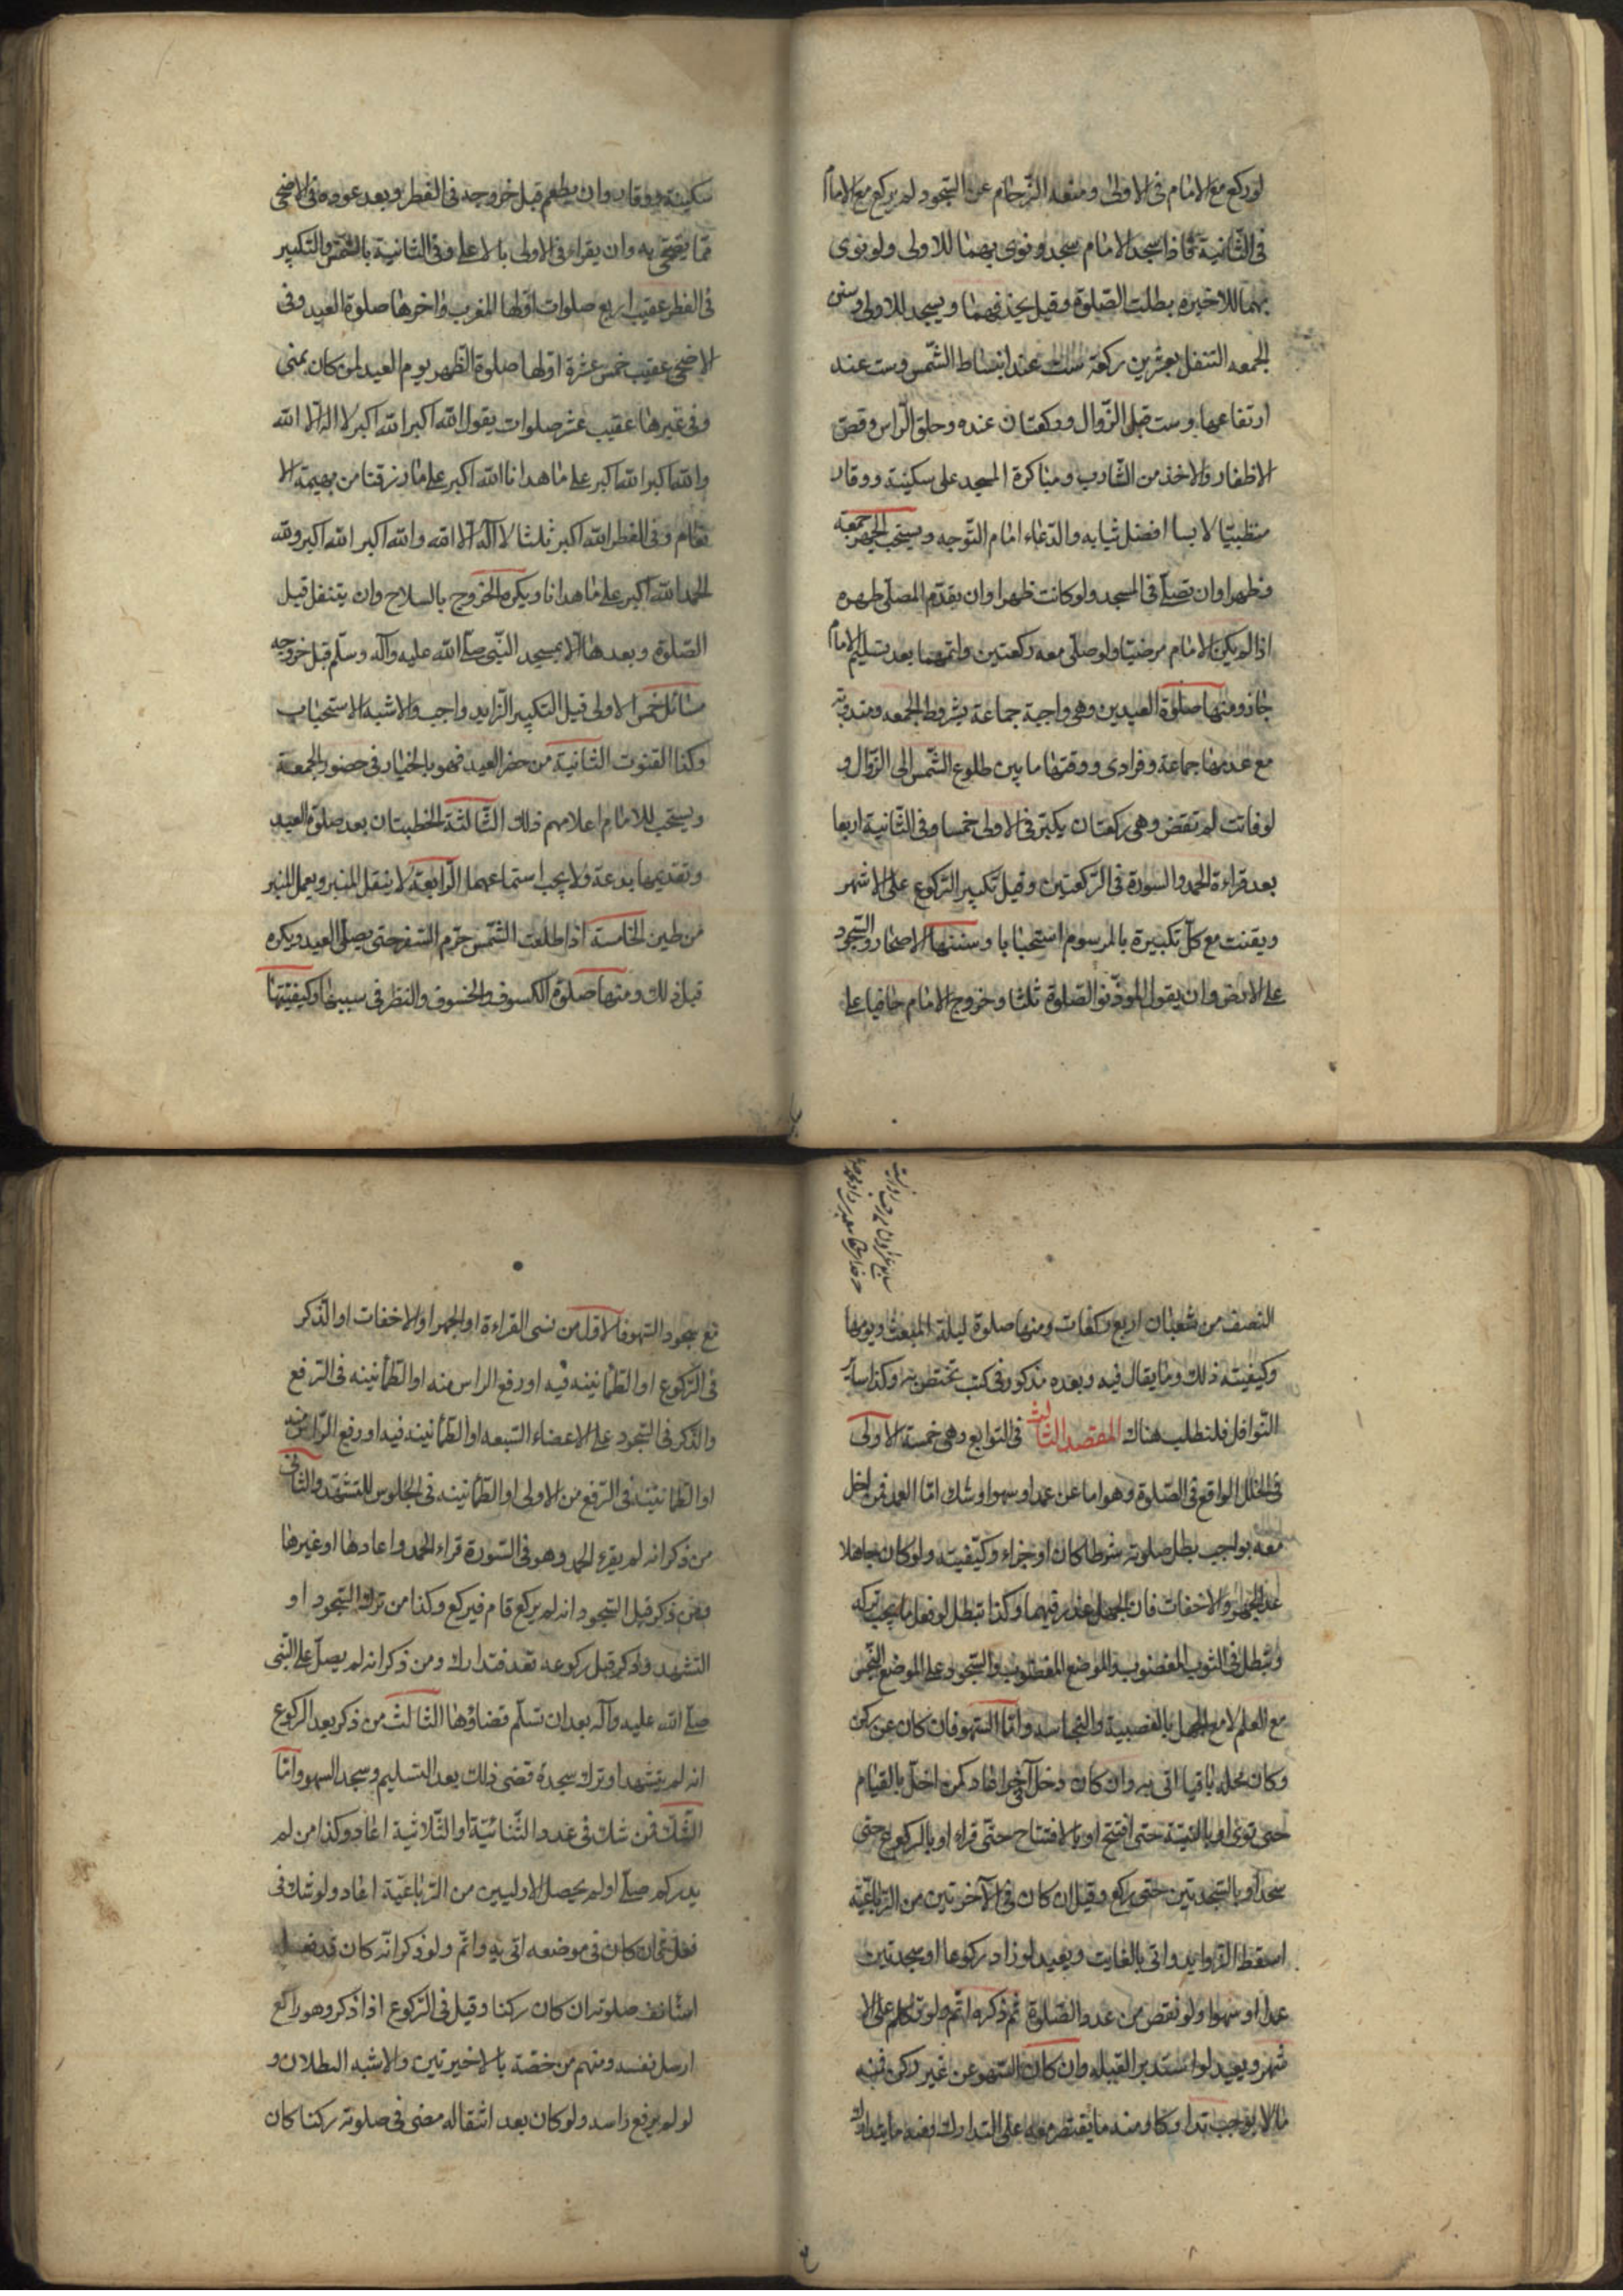 لو ركع مع الامام فى الاولى ومنعه الزحام عن السجود لم يركع مع الامام
فى الثانية فاذا سجد الامام سجد ونوى بهما للاولى ولو نوى
بهما للاخيرة بطلت الصلوة وقيل يحذفهما ويسجد للاولى وسنن
الجمعه التنفل بعشرين ركعة ست عند انبساط الشمس وست عند
ارتفاعها وست قبل الزوال وركعتان عنده وحلق الراس وقص
الاظفار والاخذ من الشارب ومباكرة المسجد على سكينة ووقار
متطيبا لابسا افضل ثيابه والدعاء امام التوجه ويستحب الجهر جمعة
وظهرا وان تصلى فى المسجد ولو كانت ظهرا وان يقدم المصلى ظهره
اذا لم يكن الامام مرضيا ولو صلى معه ركعتين واتمهما بعد تسليم الامام
جاز ومنها صلوة العيدين وهى واجبة جماعة بشروط الجمعه ومندوبة
مع عدمها جماعة وفرادى ووقتها ما بين طلوع الشمس الى الزوال و
لو فاتت لم تقض وهى ركعتان يكبر فى الاولى خمسا وفى الثانية اربعا
بعد قراءة الحمد والسورة فى الركعتين وقبل تكبير الركوع على الاشهر
ويقنت مع كل تكبيرة بالمرسوم استحبابا وسننها الاصحار والسجود
على الارض وان يقول الموذنو الصلوة ثلثا وخروج الامام حافيا على
سكينة ووقار وان يطعم قبل خروجه فى الفطر وبعد عوده فى الاضحى
مما يضحى به وان يقراء فى الاولى بالاعلى وفى الثانية بالشمس والتكبير
فى الفطر عقيب اربع صلوات اولها المغرب واخرها صلوة العيد وفى
الاضحى عقيب خمس عشرة اولها صلوة الظهر يوم العيد لمن كان بمنى
وفى غيرها عقيب عشر صلوات يقول الله اكبر الله اكبر لا اله الا الله
والله اكبر الله اكبر على ما هدانا الله اكبر على ما رزقنا من بهيمة الا
نعام وفى الفطر الله اكبر ثلثا لا اله الا الله والله اكبر الله اكبر ولله
الحمد الله اكبر على ما هدانا ويكره الخروج بالسلاح وان يتنفل قبل
الصلوة وبعدها الا بمسجد النبى صلى الله عليه وآله وسلم قبل خروجه
مسائل خمس الاولى قيل التكبير الزايد واجب والاشبه الاستحباب
وكذا القنوت الثانية من حضر العيد فهو بالخيار فى حضور الجمعة
ويستحب للامام اعلامهم ذلك الثالثة الخطبتان بعد صلوة العيد
وتقديمها بدعة ولا يجب استماعهما الرابعة لا ينقل المنبر ويعمل المنبر
من طين الخامسة اذا طلعت الشمس حرم السفر حتى يصلى العيد ويكره
قبل ذلك ومنها صلوة الكسوف والخسوف والنظر فى سببها وكيفيتها
النصف من شعبان اربع ركعات ومنها صلوة ليلة المبعث ويومها
وكيفيته ذلك وما يقال فيه وبعده مذكور فى كتب تختص به وكذا ساير
النوافل فلتطلب هناك المقصد الثالث فى التوابع وهى خمسة الاولى
فى الخلل الواقع فى الصلوة وهو اما عن عمد او سهو او شك اما العمد فمن اخل
معه بواجب بطل صلوته شرطا كان او جزاء وكيفيته ولو كان جاهلا
عدا الجهر والاخفات فان الجهل عذر فيهما وكذا تبطل لو فعل ما يجب تركه
وتبطل فى الثوب المغصوب والموضع المغصوب والسجود على الموضع النجس
مع العلم لا مع الجهل بالغصبية والنجاسه واما السهو فان كان عن ركن
وكان محله باقيا اتى به وان كان دخل آخر اعاد كمن اخل بالقيام
حتى نوى او بالنية حتى افتتح او بالافتتاح حتى قراء او بالركوع حتى
سجد او بالسجدتين حتى ركع وقيل ان كان فى الآخرتين من الرباعية
اسقط الزوايد واتى بالفايت ويعيد لو زاد ركوعا او سجدتين
عمدا او سهوا ولو نقص من عدد الصلوة ثم ذكره اتم ولو تكلم على الا
شهر ويعيد لو استدبر القبله وان كان السهو عن غير ركن فمنه
ما لا يوجب تداركا ومنه ما يقتصر معه على التدارك ومنه ما يتدارك
مع سجود السهو فالاول من نسى القراءة او الجهر او الاخفات او الذكر
فى الركوع او الطمانينه فيه او رفع الراس منه او الطمانينه فى الرفع
والذكر فى السجود على الاعضاء السبعه او الطمانينه فيه او رفع الراس منه
او الطمانينه فى الرفع من الاولى او الطمانينه فى الجلوس للتشهد والثانى
من ذكر انه لم يقرء الحمد وهو فى السورة قراء الحمد واعادها او غيرها
ومن ذكر قبل السجود انه لم يركع قام فيركع وكذا من ترك السجود او
التشهد وذكر قبل ركوعه قعد فتدارك ومن ذكر انه لم يصل على النبى
صلى الله عليه وآله بعد ان تسلم قضاؤها الثالث من ذكر بعد الركوع
انه لم يتشهد او ترك سجدة قضى ذلك بعد التسليم وسجد السهو واما
الشك فمن شك فى عدد الثنائية او الثلاثية اعاد وكذا من لم
يدر كم صلى او لم يحصل الاوليين من الرباعية اعاد ولو شك فى
فعل فان كان فى موضعه اتى به واتم ولو ذكر انه كان قد فعله
استانف صلوته ان كان ركنا وقيل فى الركوع اذا ذكر وهو راكع
ارسل نفسه ومنهم من خصه بالاخيرتين والاشبه البطلان و
لو لم يرفع راسه ولو كان بعد انتقاله مضى فى صلوته ركنا كان